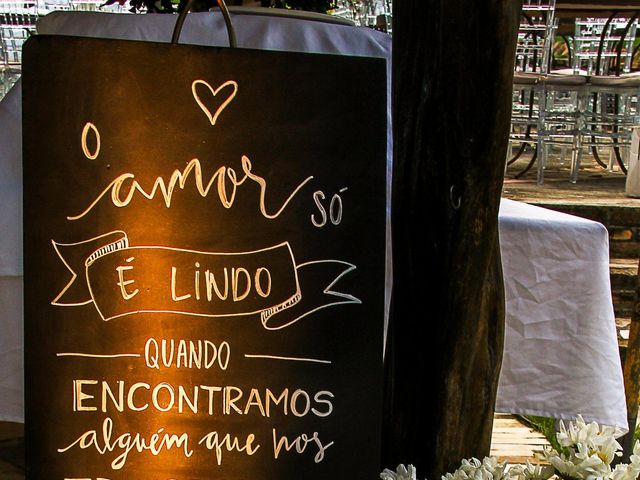 O
amor só
É LINDO
QUANDO
ENCONTRAMOS
alguém que nos